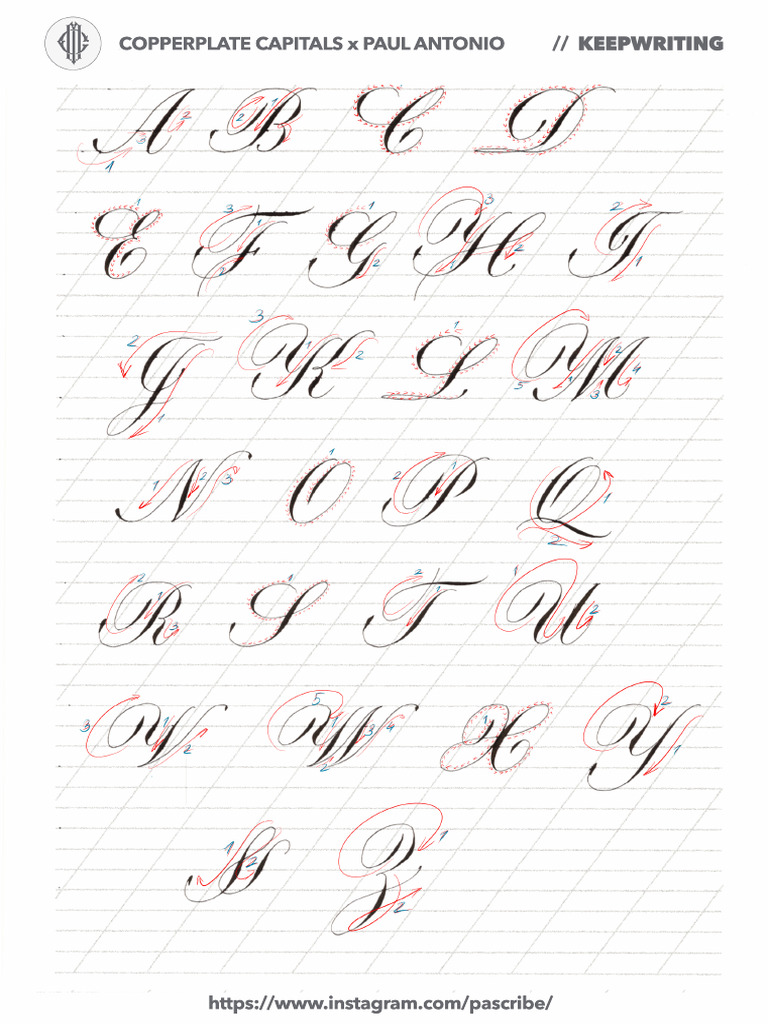 COPPERPLATE CAPITALS x PAUL ANTONIO // KEEPWRITING
A B C D
E F G H I
J K L M
N O P Q
R S T U
V W X Y
Z
https://www.instagram.com/pascribe/